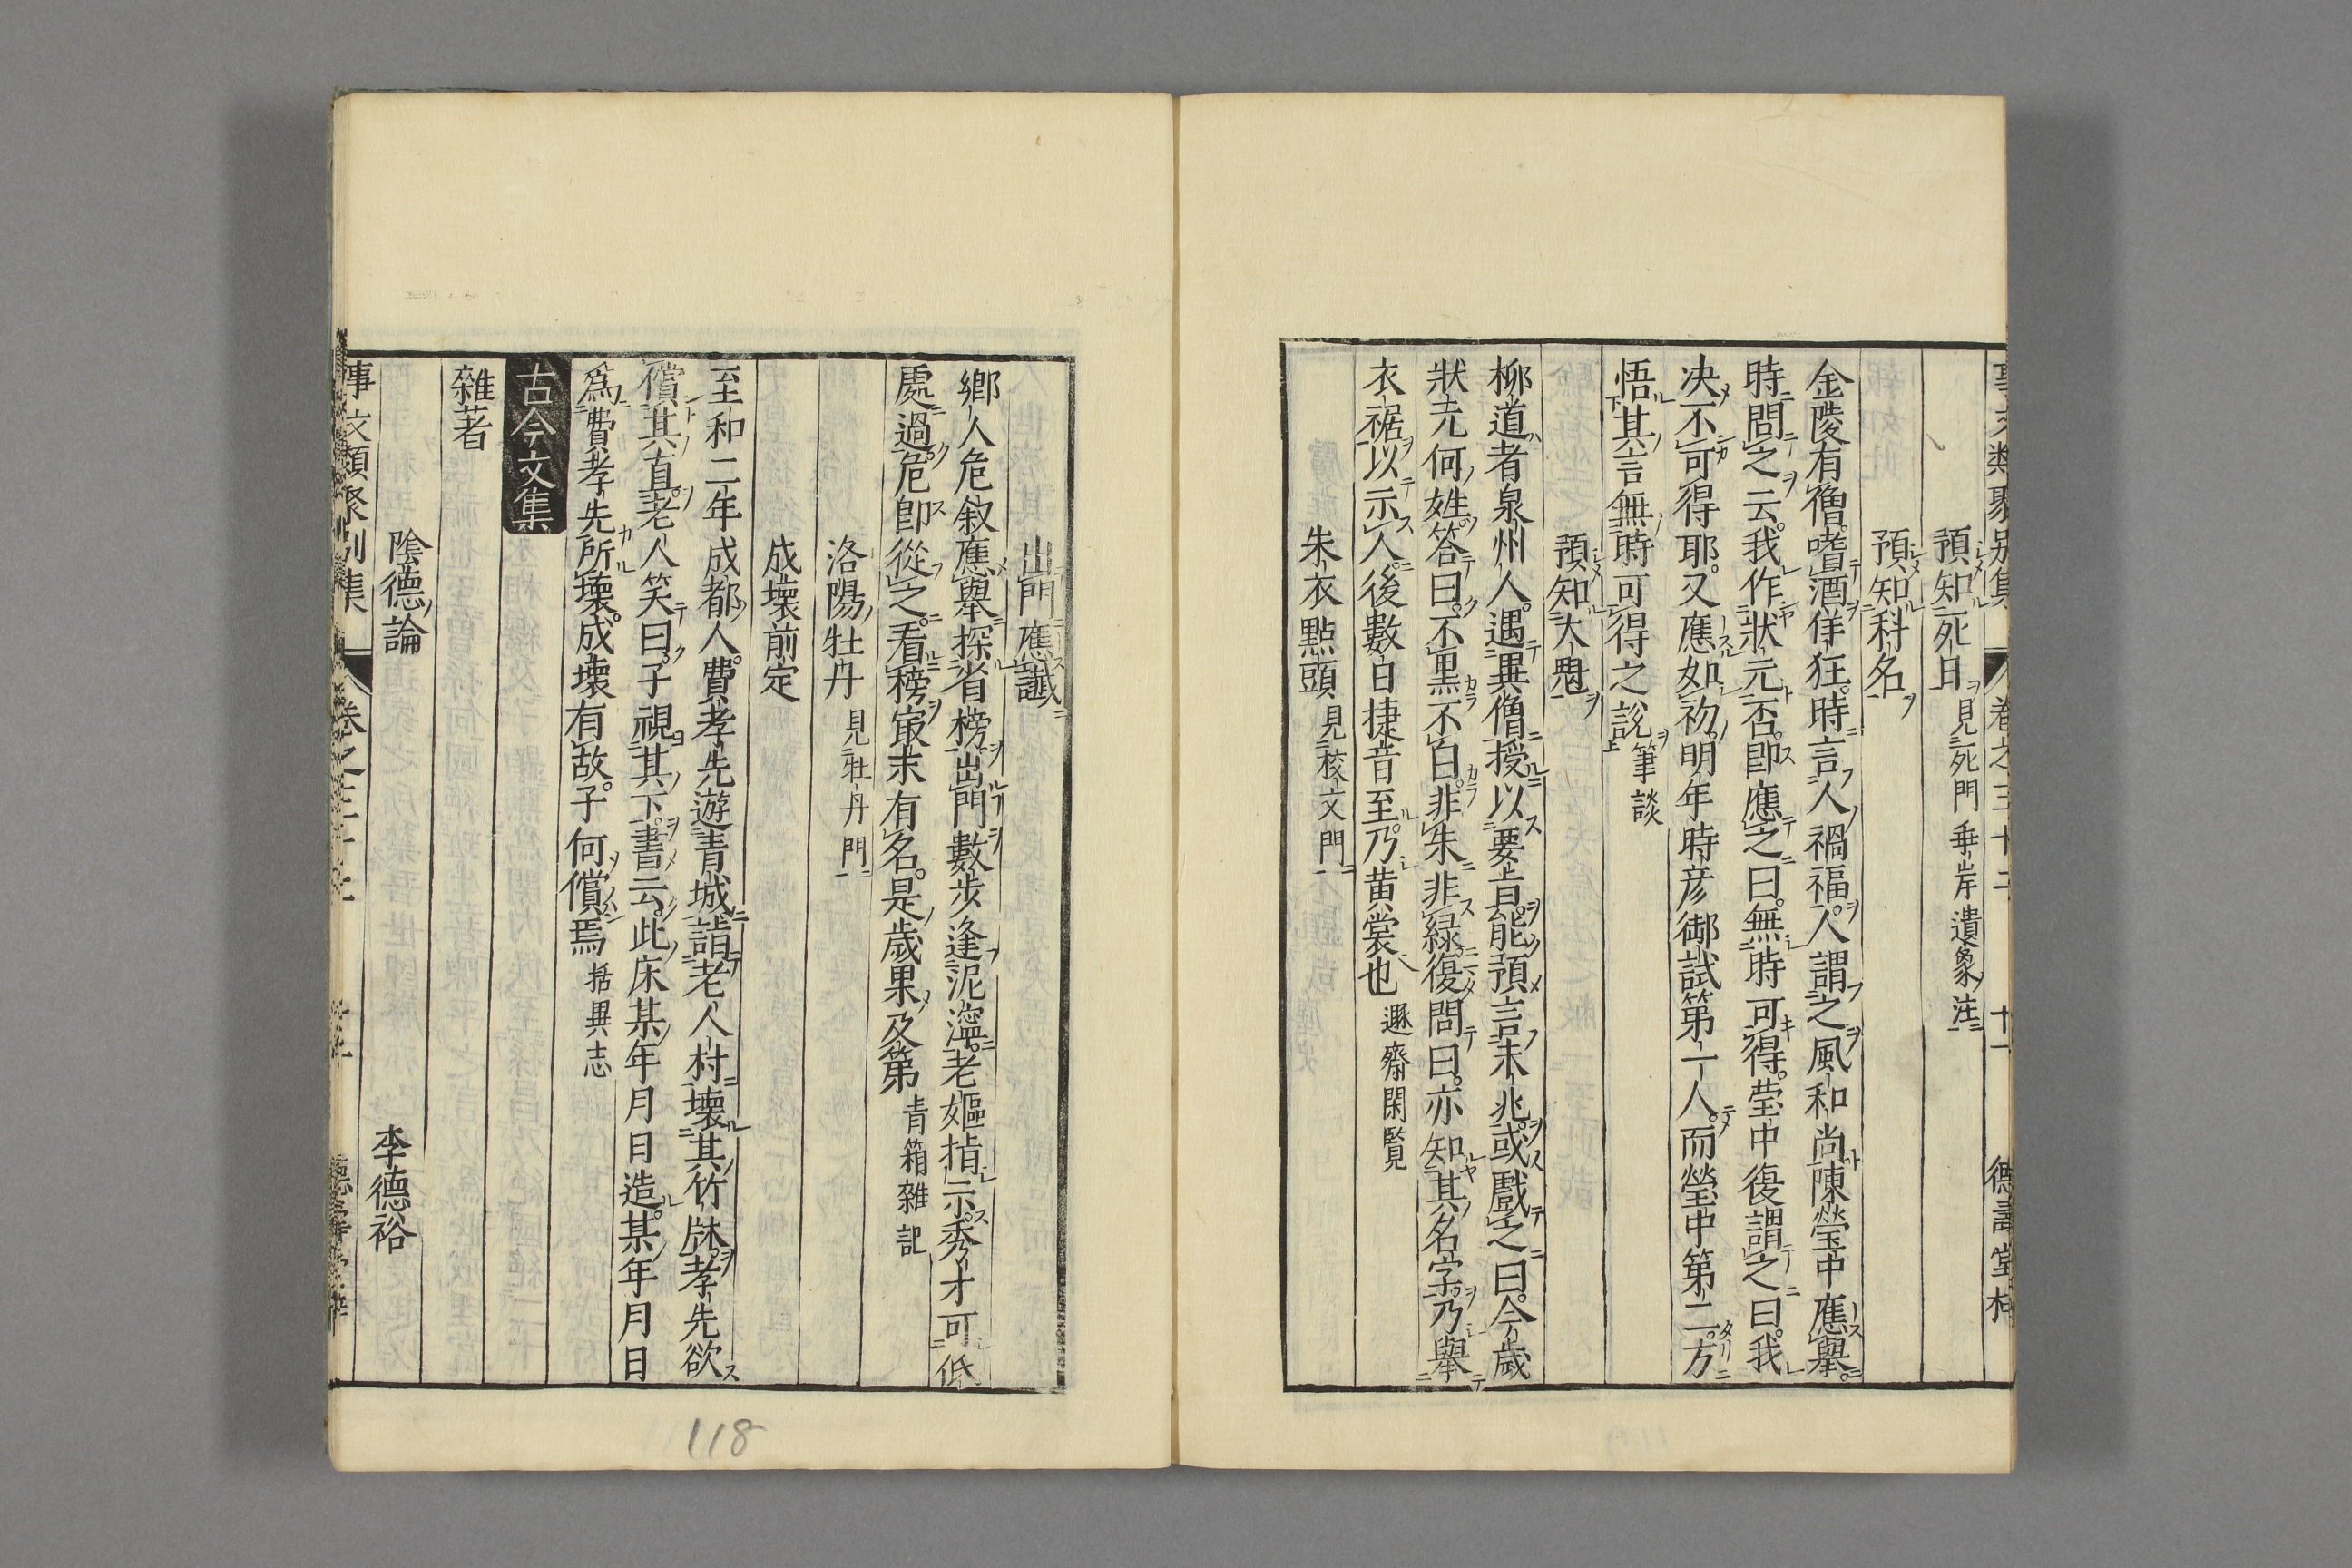 事文類聚別集 卷之三十二 十一 德壽堂梓
預知死日 見死門垂岸遺象注
預知科名
金陵有僧嗜酒佯狂時言人禍福人謂之風和尚陳瑩中應舉
時問之云我作狀元否即應之曰無時可得瑩中復謂之曰我
决不可得耶又應如初明年時彦御試第一人而瑩中第二方
悟其言無時可得之說 筆談
預知大魁
柳道者泉州人遇異僧授以要旨能預言未兆或戲之曰今歲
狀元何姓答曰不黒不白非朱非緑復問曰亦知其名字乃舉
衣裾以示人後數日捷音至乃黄裳也 遯齋閑覧
朱衣點頭 見校文門
出門應讖
鄉人危叙應舉探省榜出門數步逢泥濘老嫗指示秀才可低
處過危即從之看榜㝡末有名是歲果及第 青箱雜記
洛陽牡丹 見牡丹門
成壞前定
至和二年成都人費孝先遊青城詣老人村壞其竹牀孝先欲
償其直老人笑曰子視其下書云此床某年月日造某年月日
爲費孝先所壞成壞有故子何償焉 括異志
古今文集
雜著
陰德論 李德裕
事文類聚別集 卷之三十二